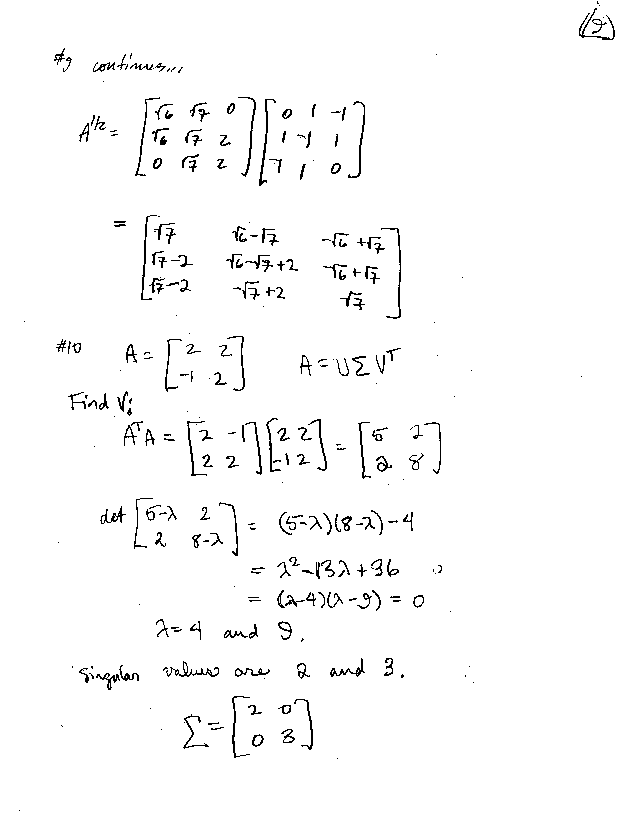 (9)
#9 continues...
A^{1/2} = [√6 √7 0; √6 √7 2; 0 √7 2] [0 1 -1; 1 -1 1; -1 1 0]
= [√7 √6-√7 -√6+√7; √7-2 √6-√7+2 -√6+√7; √7-2 -√7+2 √7]
#10 A = [2 2; -1 2] A = UΣV^T
Find V:
A^T A = [2 -1; 2 2] [2 2; -1 2] = [5 2; 2 8]
det [5-λ 2; 2 8-λ] = (5-λ)(8-λ)-4
= λ²-13λ+36
= (λ-4)(λ-9) = 0
λ=4 and 9.
Singular values are 2 and 3.
Σ = [2 0; 0 3]